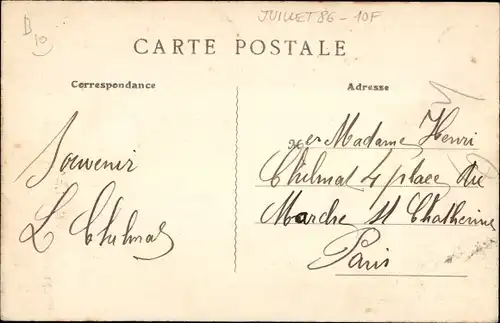 D
10
JUILLET 86 - 10F
CARTE POSTALE
Correspondance
Adresse
Souvenir
L Chilmat
Madame Henri
Chilmat 4 place du
Marche St Chatherine
Paris